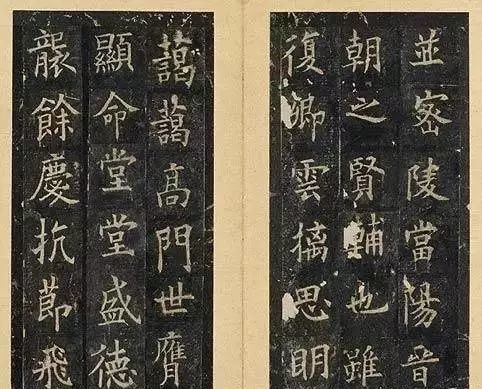 並宻陵當陽晉
朝之賢輔也雖
復卿雲摛思眀
藹藹高門世膺
顯命堂堂盛德
襲餘慶抗莭飛